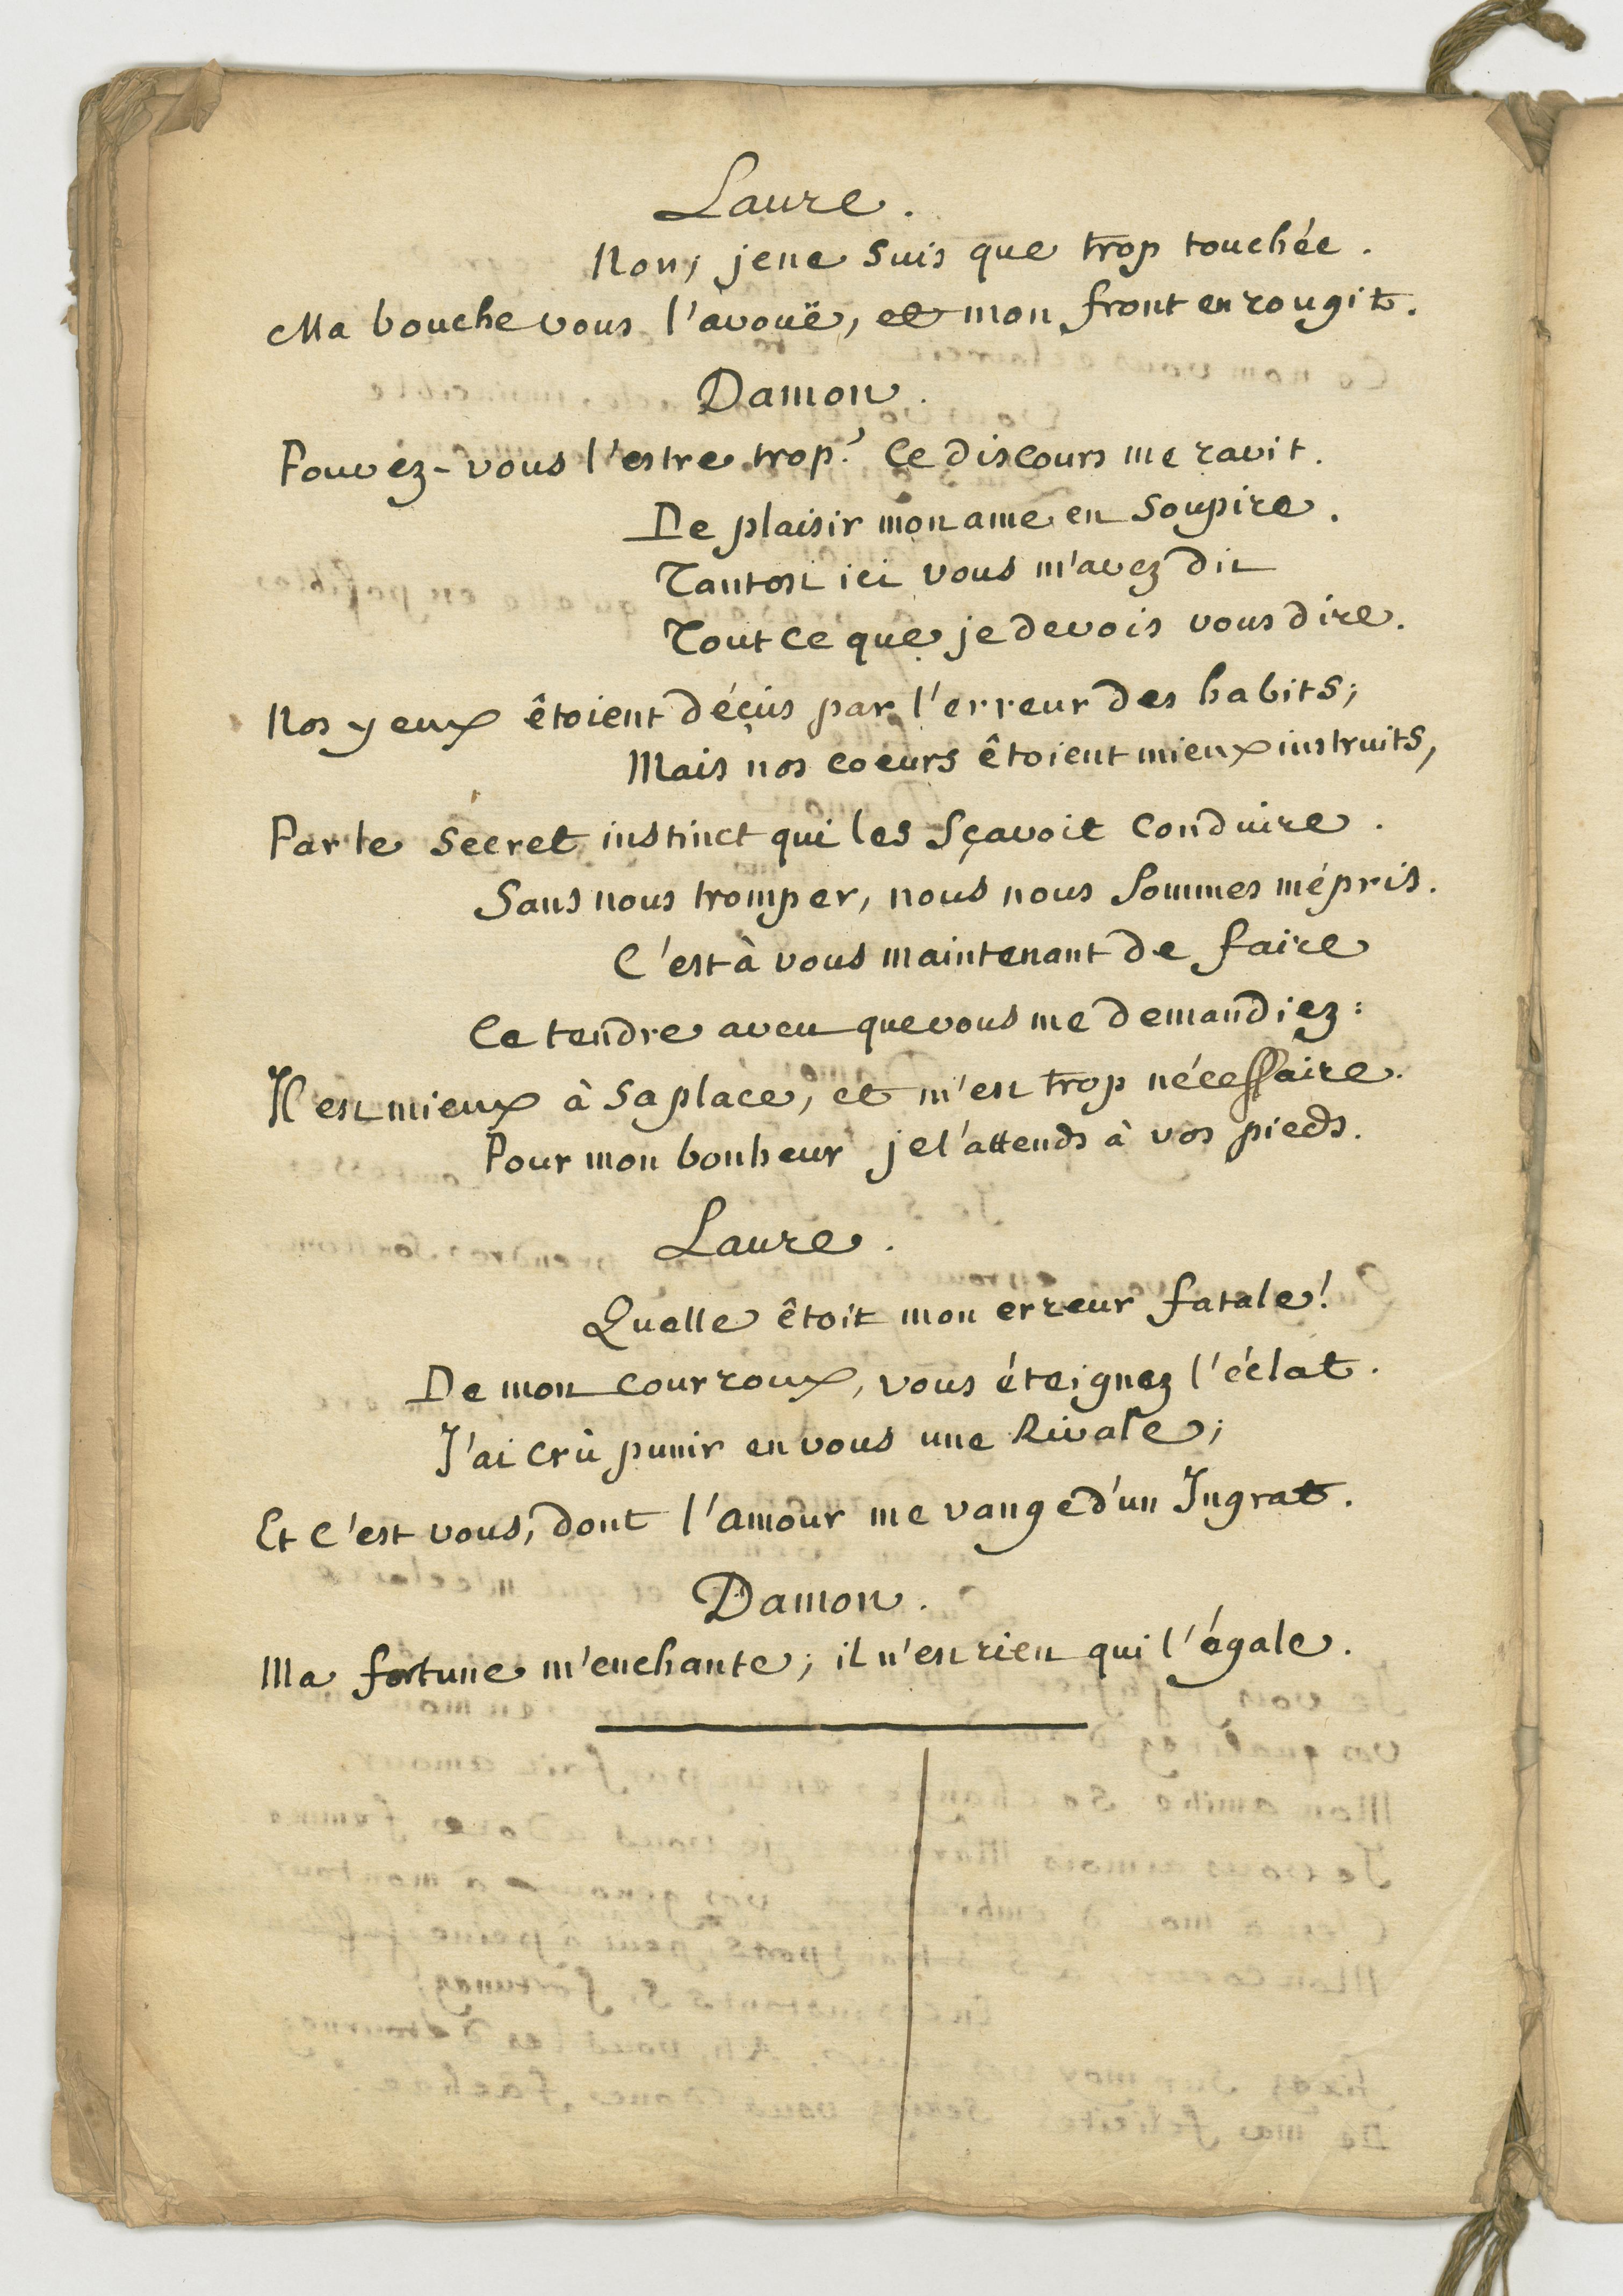 Laure.
Non, je ne suis que trop touchée.
Ma bouche vous l'avouë, et mon front en rougit.
Damon.
Pouvez-vous l'estre trop? Ce discours me ravit.
De plaisir mon ame en soupire.
Tantost ici vous m'avez dit
Tout ce que je devois vous dire.
Nos yeux êtoient déçus par l'erreur des habits;
Mais nos coeurs êtoient mieux instruits,
Par le sécret instinct qui les sçavoit conduire.
Sans nous tromper, nous nous sommes mépris.
C'est à vous maintenant de faire
Ce tendre aveu que vous me demandiez:
Il est mieux à sa place, et m'est trop nécessaire.
Pour mon bonheur je l'attends à vos pieds.
Laure.
Quelle êtoit mon erreur fatale!
De mon courroux, vous éteignez l'éclat.
J'ai crû punir en vous une Rivale;
Et c'est vous, dont l'amour me vange d'un Ingrat.
Damon.
Ma fortune m'enchante; il n'est rien qui l'égale.